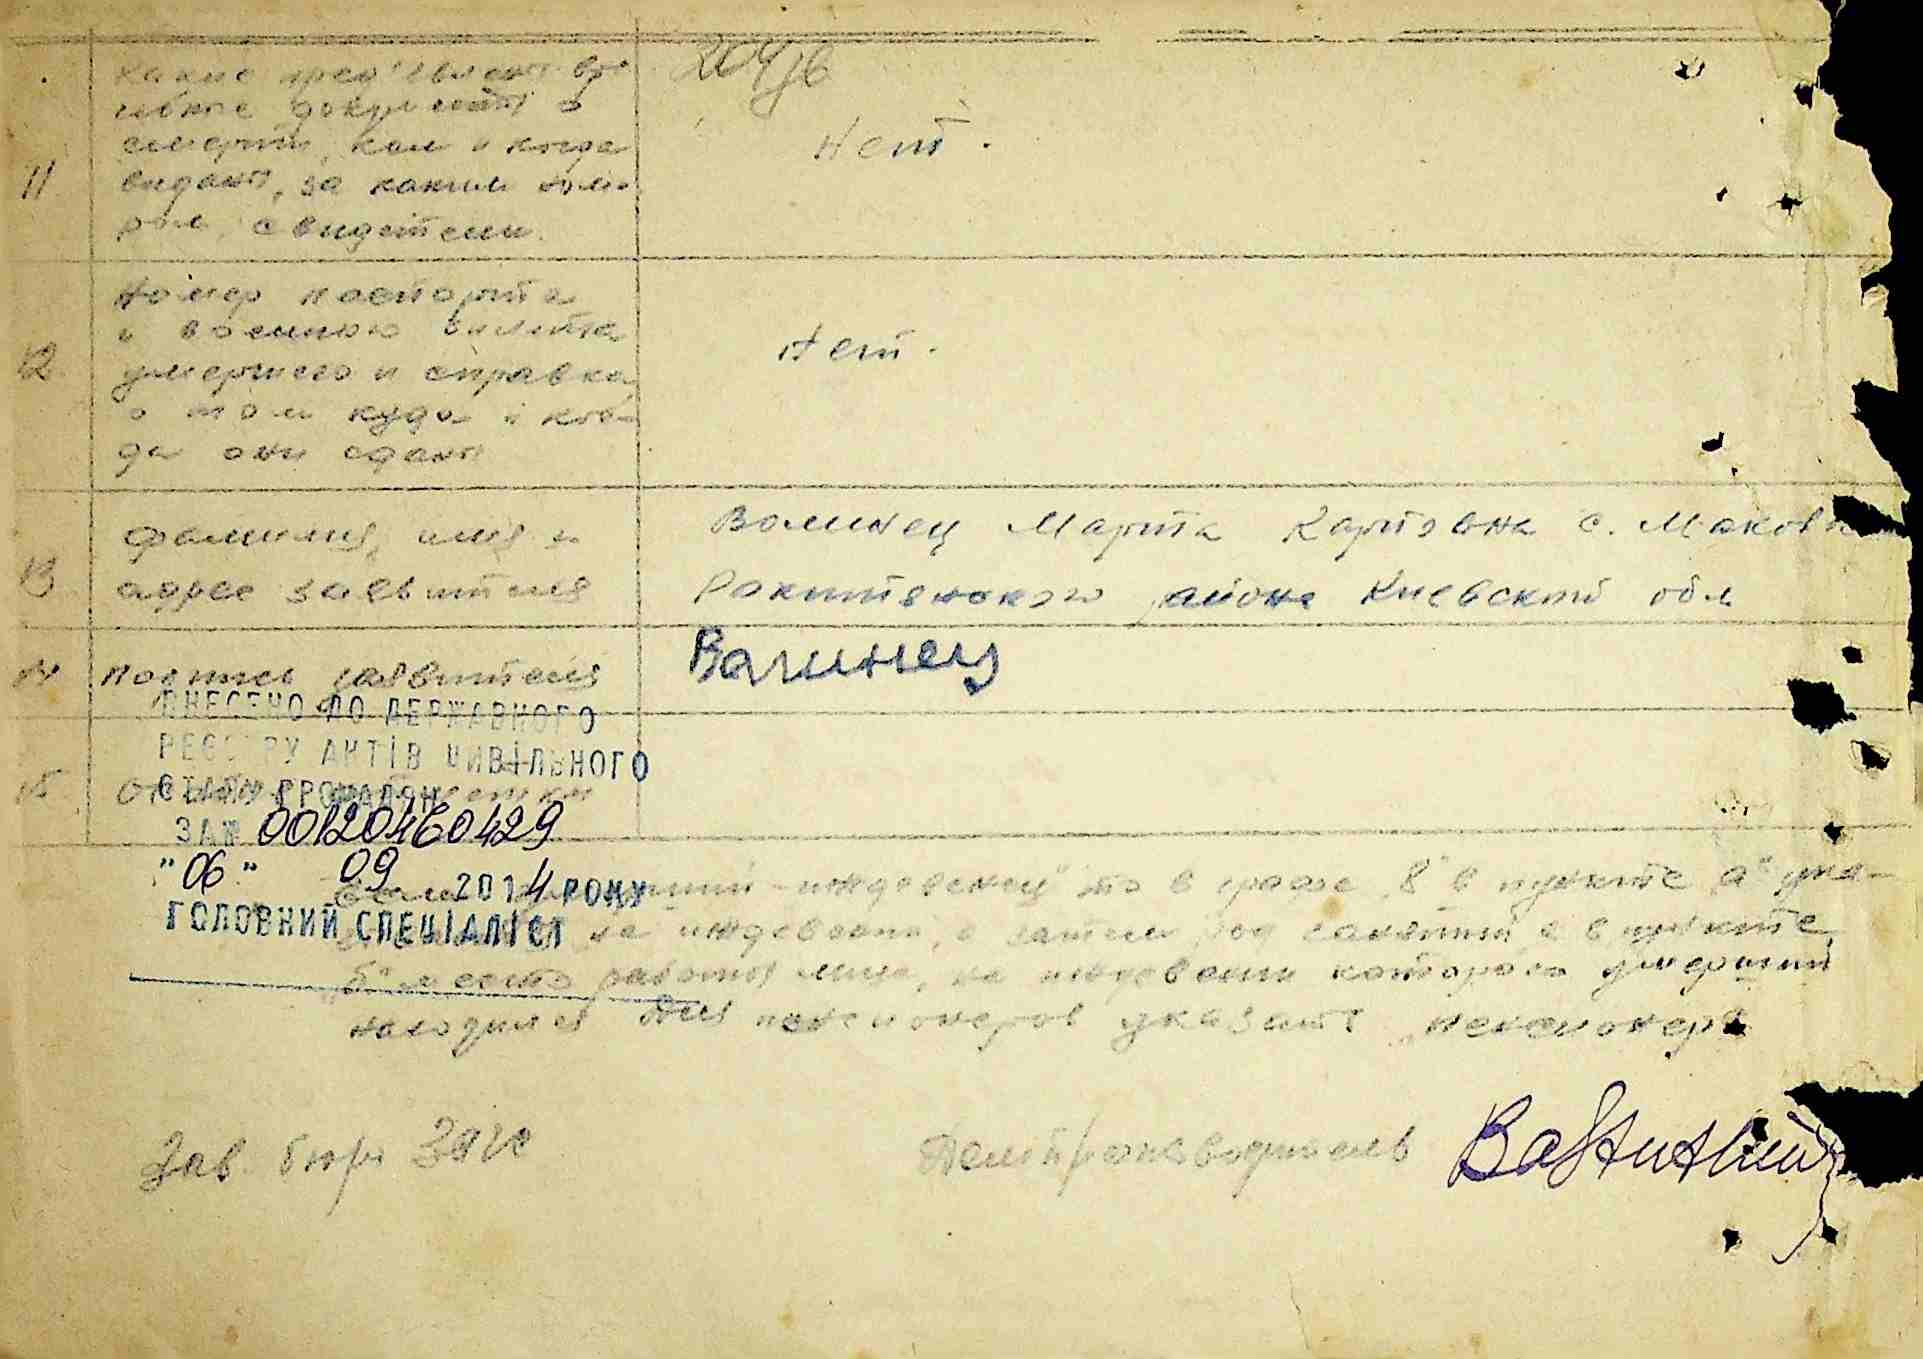 11
Какие пред'явлены вра
чебные документы о
смерти, кем и когда
выданы, за каким номе
ром, свидетели.
Нет.
12
Номер паспорта
и военного билета
умершего и справка
о том куда и ког-
да они сданы
Нет.
13
Фамилия, имя и
адрес заявителя
Волинец Марта Карповна с.
Ракитянского района Киевской обл
14
Подпись заявителя
Волинец
15
ВНЕСЕНО ДО ДЕРЖАВНОГО
РЕЄСТРУ АКТІВ ЦИВІЛЬНОГО
СТАНУ ГРОМАДЯН
ЗА № 00120460429
"06" 09 2014 РОКУ
ГОЛОВНИЙ СПЕЦІАЛІСТ
иждевенец" то в графе "8" в пункте "а" ука-
на иждевении, а затем род занятий, а в пункте
"б" место работы лица, на иждевении которого умерший
находился Для пенсионеров указать "пенсионер"
Зав. бюро Загс
Делопроизводитель